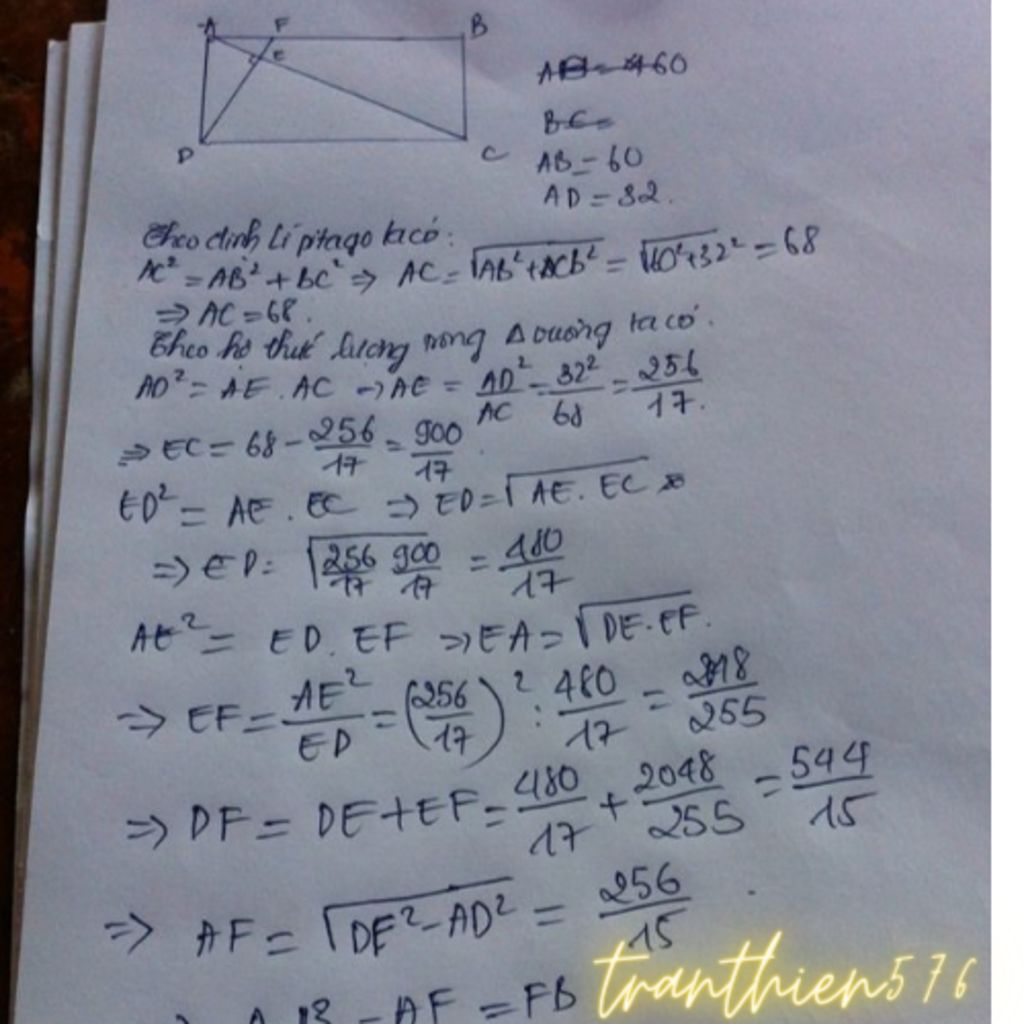 A F B
E
D C
AB = 60
AD = 32.
Theo định lí pitago ta có:
AC² = AB² + BC² ⇒ AC = √AB² + CB² = √60² + 32² = 68
⇒ AC = 68.
Theo hệ thức lượng trong Δ vuông ta có.
AD² = AE . AC → AE = AD²/AC = 32²/68 = 256/17.
⇒ EC = 68 - 256/17 = 900/17
ED² = AE . EC ⇒ ED = √AE . EC
⇒ ED = √256/17 900/17 = 480/17
AE² = ED . EF ⇒ EA = √DE . EF.
⇒ EF = AE²/ED = (256/17)² : 480/17 = /255
⇒ DF = DE + EF = 480/17 + 2048/255 = 544/15
⇒ AF = √DF² - AD² = 256/15
- AF = FB
tranthien576